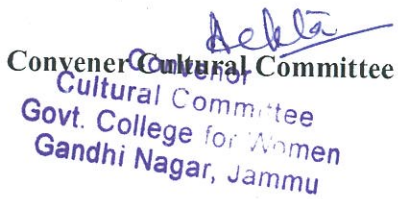 Convener Cultural Committee
Convenor
Cultural Committee
Govt. College for Women
Gandhi Nagar, Jammu